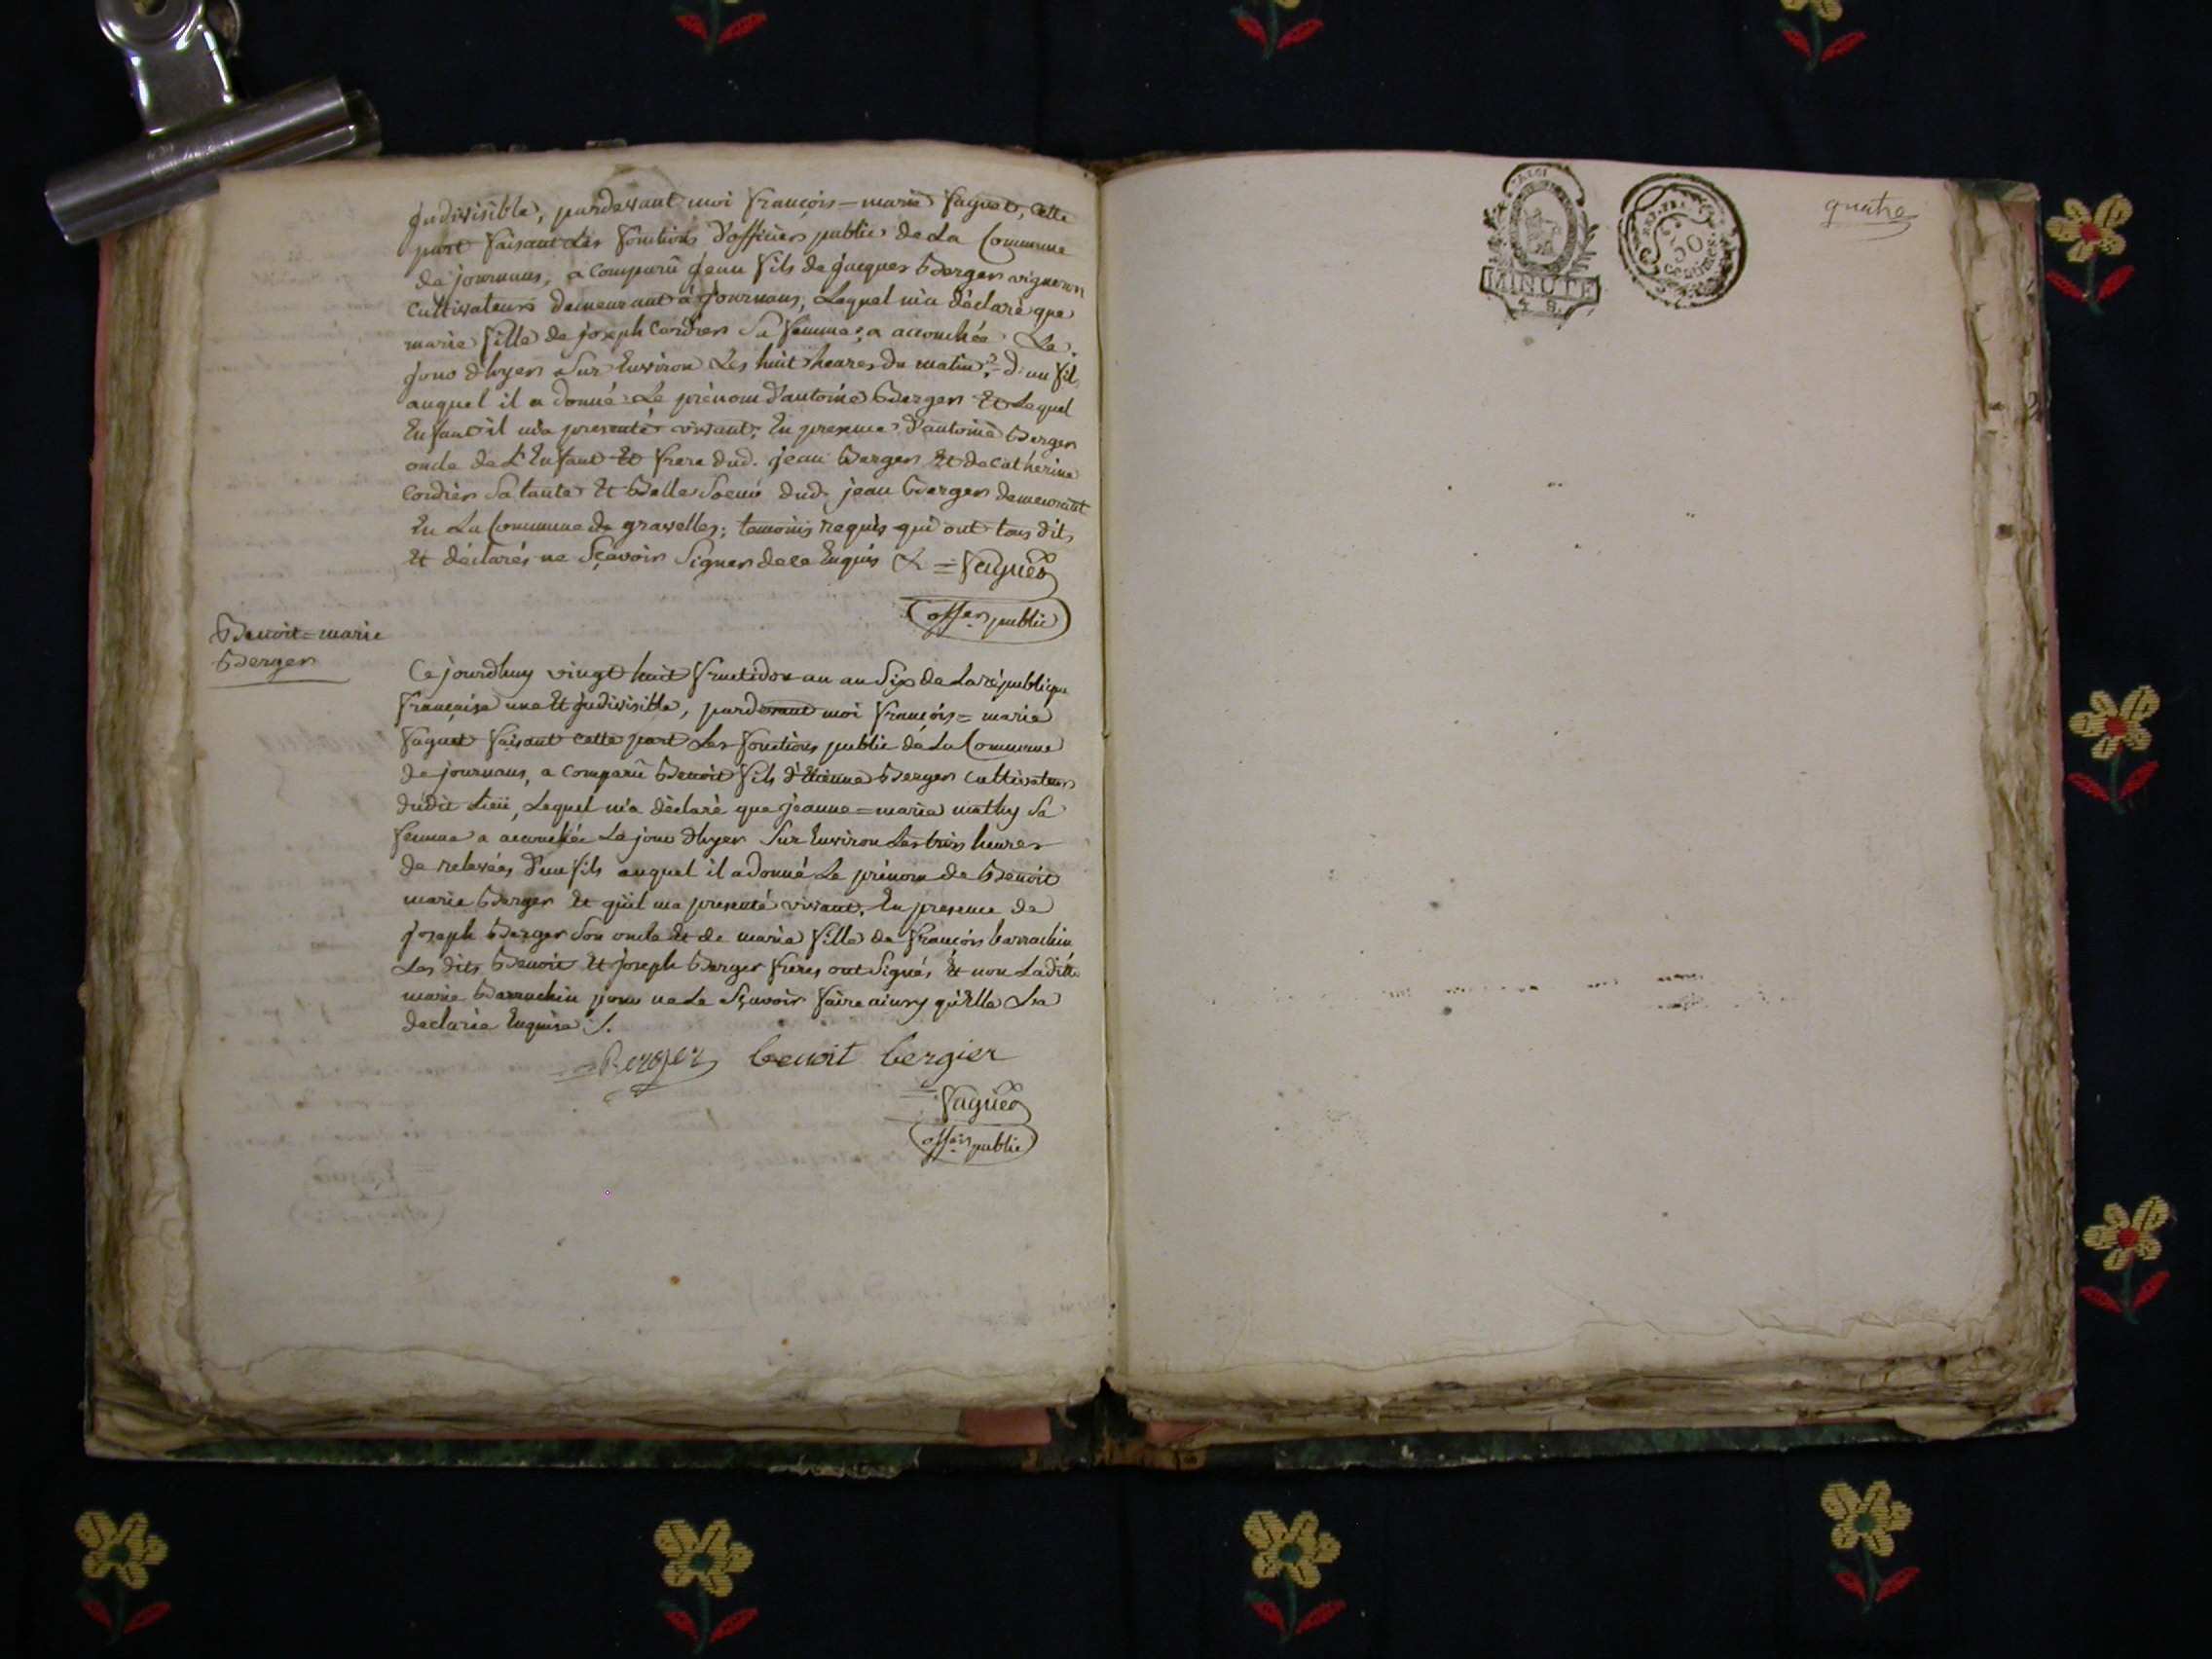 Indivisible, pardevant moi françois=marie faguet, cette
part faisant les fonctions d'officier public de La Commune
de journans, a comparû Jean fils de jacques Berger vigneron
Cultivateur demeurant à Journans, Lequel m'a déclaré que
marie fille de joseph Cordier sa femme, a accouchée Le
jour d'hyer sur Environ Les huit heures du matin, d'un fils
auquel il a donné Le prénom d'antoine Berger Et Lequel
Enfant il m'a presenté vivant; En presence d'antoine Berger
oncle de L'Enfant Et frere dud. jean Berger Et de Catherine
Cordier sa tante Et Belle Soeur dud. jean Berger demeurant
En La Commune de gravelles; temoins requis qui ont tous dit
Et déclarés ne Sçavoir Signer de ce Enquis
=faguet
offer. public
Benoit=marie
Berger
Ce jourdhuy vingt huit fructidor an an Six de La république
française une Et Indivisible, pardevant moi françois=marie
faguet faisant cette part Les fonctions public de La Commune
de journans, a comparû Benoit fils d'Etienne Berger cultivateur
dudit Lieü, Lequel m'a déclaré que jeanne=marie mathy Sa
femme a accouchée Le jour d'hyer Sur Environ Les trois heures
de relevées d'un fils auquel il a donné Le prénom de Benoit
marie Berger Et qu'il ma presenté vivant. En presence de
Joseph Berger Son oncle Et de marie fille de françois barrachin
Les dits Benoit Et joseph Berger freres ont Signés Et non Laditte
marie Barrachin pour ne Le Sçavoir faire ainsy qu'Elle La
declarée Enquise /.
Berger benoit bergier
=faguet
offer. public
MINUTE
50
Centimes
quatre